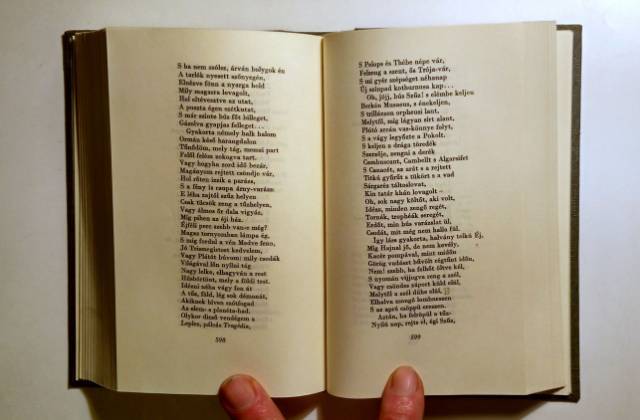 S ha nem szólsz, árván bolygok én
A tarlók nyesett szőnyegén,
Elnézve fönn a nyurga hold
Mily magasra lovagolt,
Hol eltévesztve az utat,
A puszta égen szétkutat,
S már szinte bús főt billeget,
Gázolva gyapjas felleget...
Gyakorta némely halk halom
Ormán késő harangdalom
Tűnődöm, mely tág, messzi part
Felől felém zokogva tart.
Vagy hogyha zord idő bezár,
Magányom rejtett csöndje vár,
Hol rőten izzik a parázs,
S a fény is csupa árny-varázs
E léha zajtól szűz helyen
Csak tücsök zeng a tűzhelyen,
Vagy álmos őr dala vigyáz,
Míg pihen az éji ház.
Éjféli perc szebb van-e még?
Magas tornyomban lámpa ég,
S míg fordul a vén Medve fenn,
Jó Triszmegisztet kedvelem,
Vagy Plátót búvom: mily csodák
Világával lőn nyilai tág
Nagy lelke, elhagyván a rest
Húsbörtönt, mely a földi test.
Idézni néha vágy fon át
A tűz, föld, lég sok démonát,
Akiknek híven szótfogad
Az elem- s planéta-had.
Olykor díszd vendégem a
Leples, pálcás Tragédia,
598
S Pelops és Thébe népe vár,
Felzeng a szent, ős Trója-vár,
S mi gyér szépséget néhanap
Új színpad kothurnusa kap...
Oh, jőjj, bús Szűz! s elémbe keljen
Berkén Musaeus, s énekeljen,
S szólózzon orpheusi lant,
Melytől, míg lágyan sírt alant,
Plútó arcán vas-könnye folyt,
S a vágy legyőzte a Pokolt.
S keljen a drága töredék
Szerzője, zengni a derék
Cambuscant, Cambellt s Algarsifet
S Canacét, az arát s a rejtett
Titkú gyűrűt a tükört s a vad
Sárgaréz táltoslovat,
Kin tatár khán lovagolt –
Oh, sok nagy költőt, aki volt,
Idézz, minden zengő regét,
Tornák, tropheák seregét,
Erdőt, min bús varázslat ül,
Csodát, mit még nem hallo fül.
Így láss gyakorta, halvány tolkú Éj,
Míg Hajnal jő, de nem kevély,
Kacér pompával, mint midőn
Görög vadászt bűvölt régtünt időn,
Nem! szebb, ha felhőt öltve kél,
S nyomán vijjogva zeng a szél,
Vagy csöndes záport küld elül,
Melytől a szél dühe elül,
Elhalva zsongó lombneszen
S az apró csöppű ereszen.
Aztán, ha felröpül a tűz-
Nyilú nap, rejts el, égi Szűz,
599